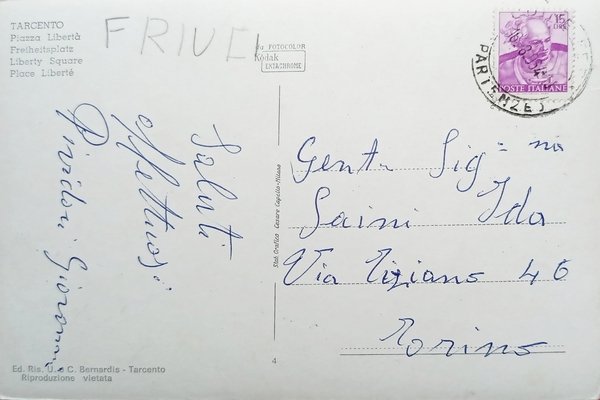 TARCENTO
Piazza Libertà
Freiheitsplatz
Liberty Square
Place Liberté
FRIULI
da FOTOCOLOR
Kodak
EKTACHROME
15
LIRE
POSTE ITALIANE
PARTENZE
Saluti
affettuosi
Giovanni
Stab. Grafico Cesare Capello - Milano
Gent. Sig=na
Saini Ida
Via Tiziano 46
Torino
Ed. Ris. U. e C. Bernardis - Tarcento
Riproduzione vietata
4